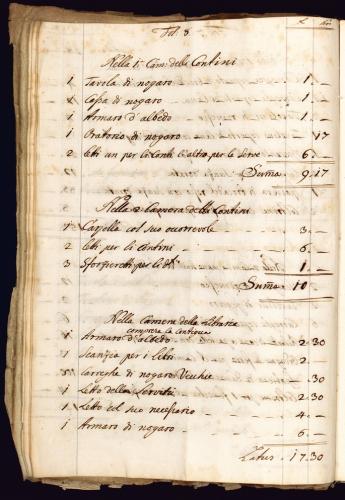 Fol. 8
Nella 1. Cam. della Contini
1 Tavola di nogaro - - 1. -
1 Cassa di nogaro - - 1. -
1 Armaro d'albedo - - 1. -
1 Oratorio di nogaro - - 17
2 letti un per la Conti l'altro per le Serve - 6. -
Suma. 9. 17
Nella 2 Camera della Contini
1 col suo - 3. -
2 letti per li Contini - - 6. -
3 per letti - - 1. -
Suma. 10 -
Nella Camera della
compresa la
1 Armaro d'albedo - - 2. 30
1 Scanzia per i libri - - 2
di nogaro Vecchie - . 30
1 Letto della Servitù - - 2. 30
1 Letto col suo necessario - - 4. -
1 Armaro di nogaro - - 6. -
Latus. 17. 30